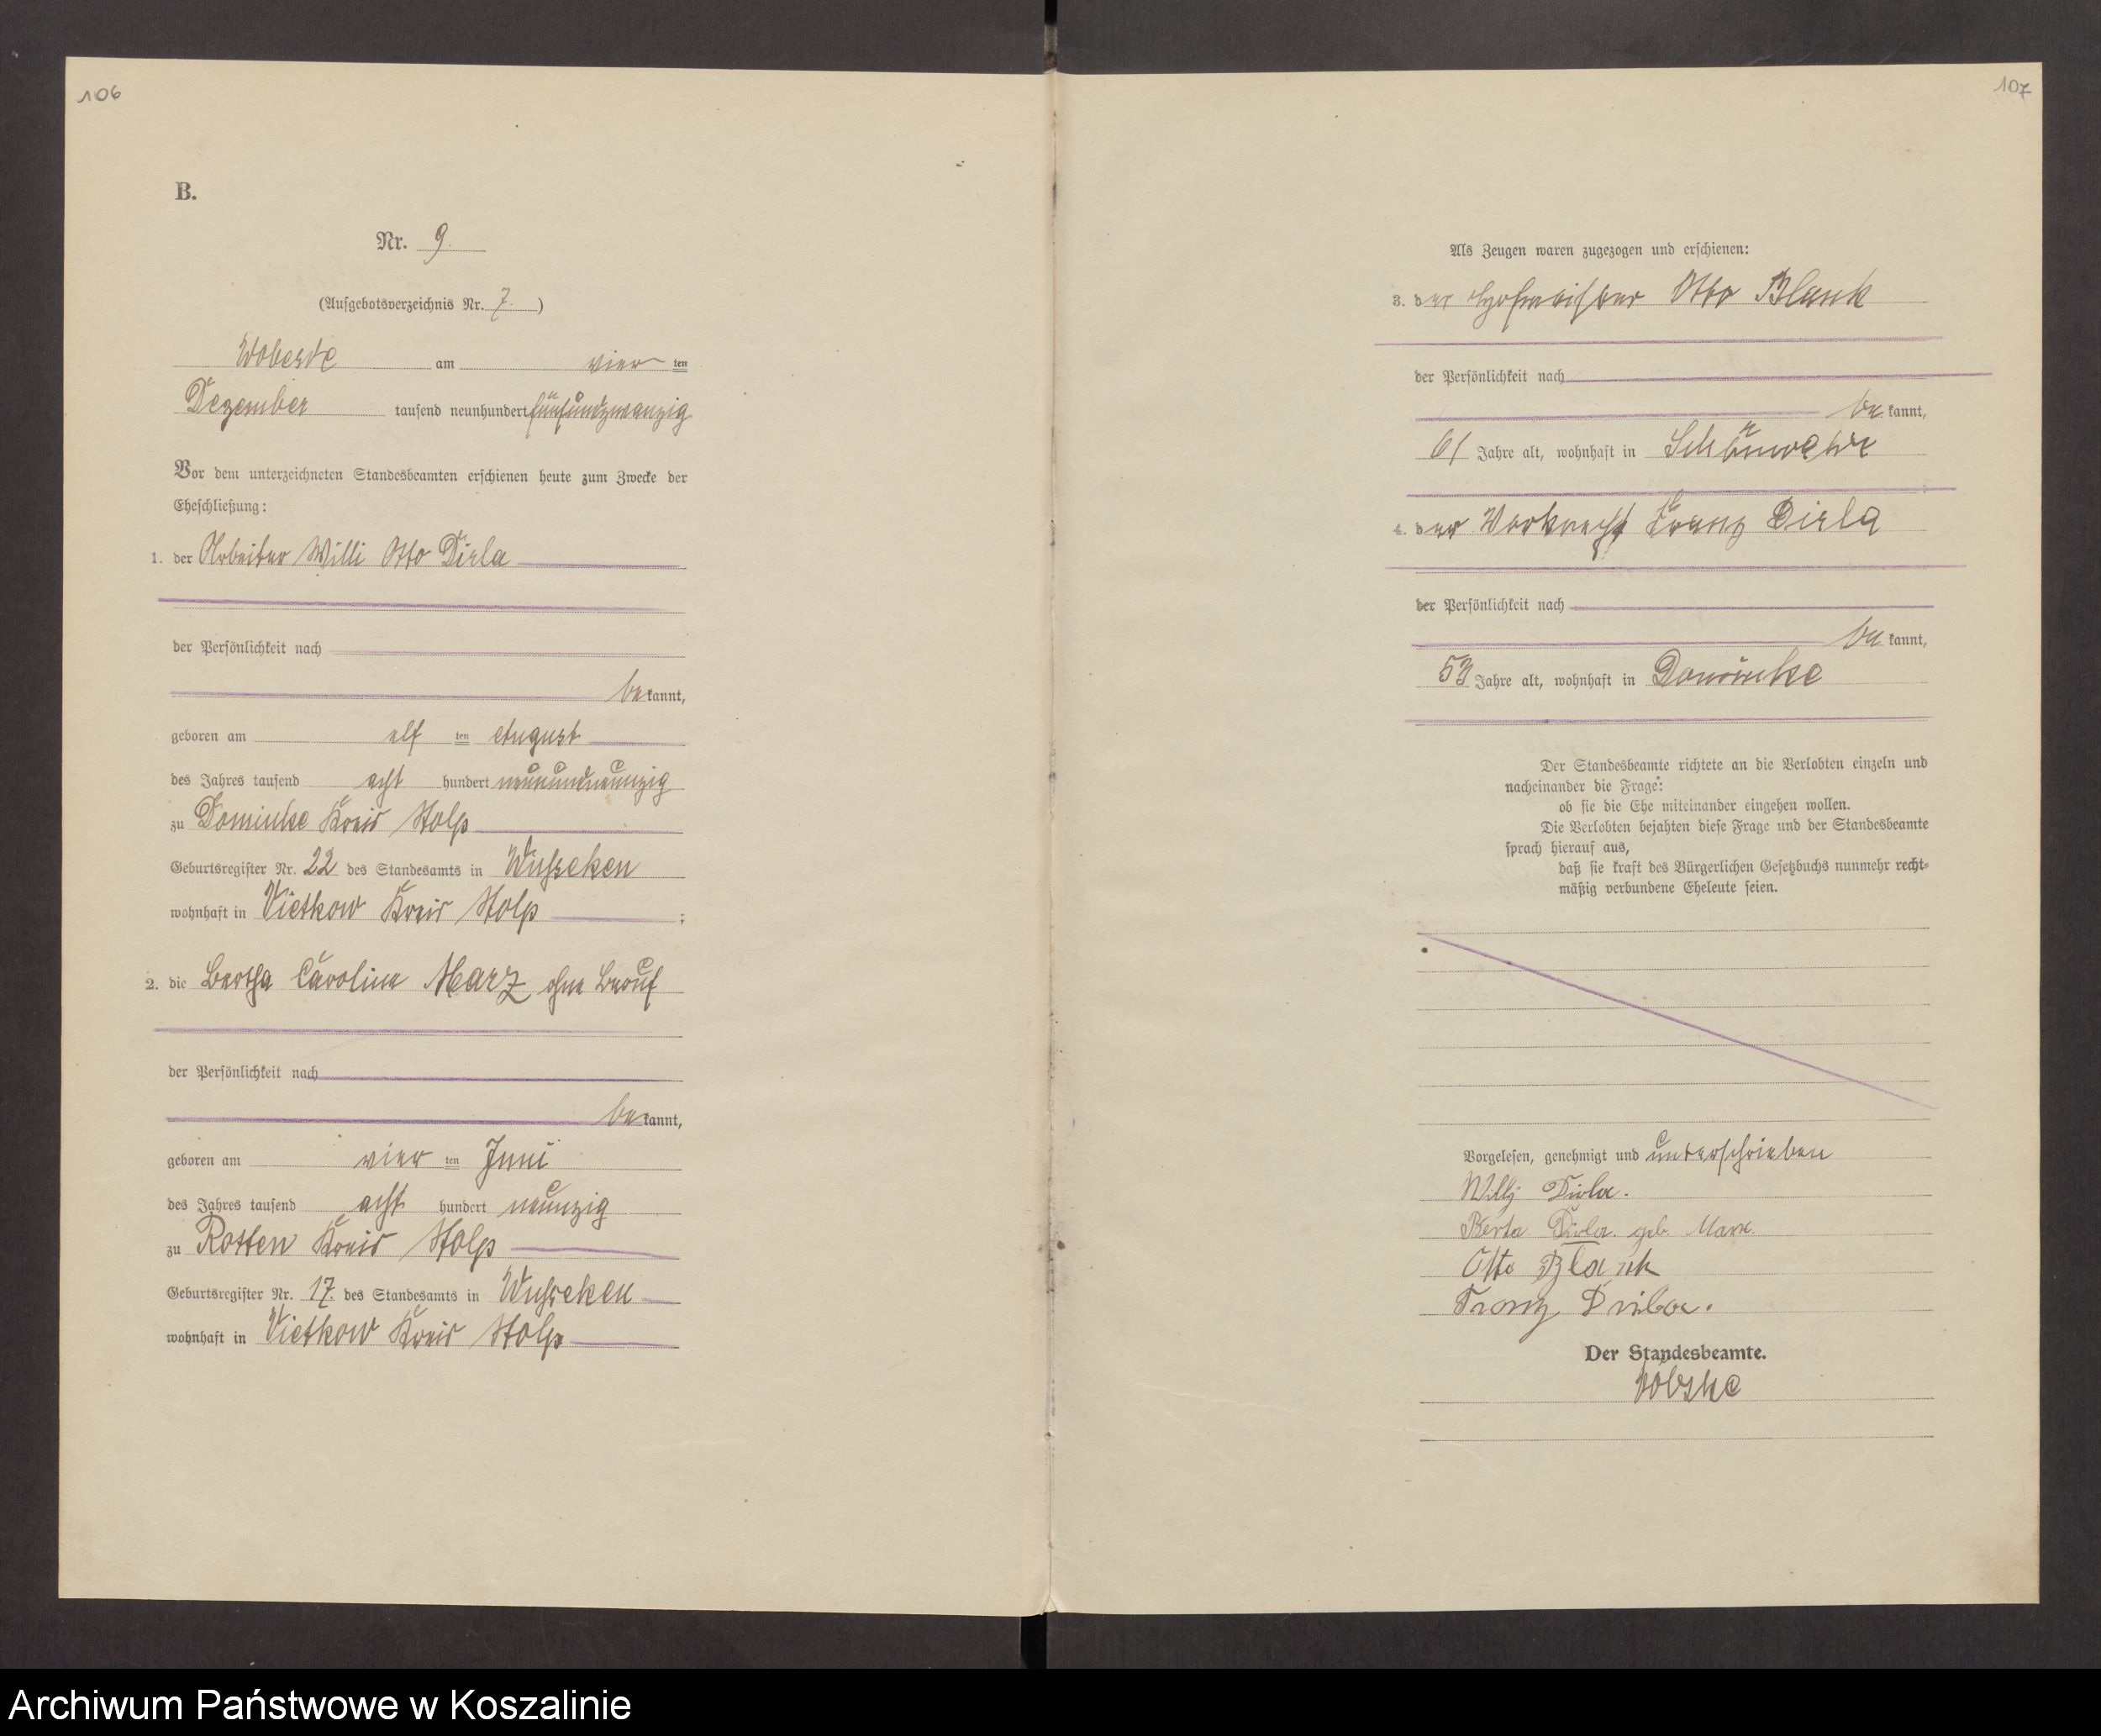 106
B.
Nr. 9.
(Aufgebotsverzeichnis Nr. 7.)
Wobesde am vier ten
Dezember tausend neunhundert fünfundzwanzig
Vor dem unterzeichneten Standesbeamten erschienen heute zum Zwecke der
Eheschließung:
1. der Arbeiter Willi Otto Dirla
der Persönlichkeit nach
be kannt,
geboren am elf ten August
des Jahres tausend acht hundert neunundneunzig
zu Dominke Kreis Stolp
Geburtsregister Nr. 22 des Standesamts in Wusseken
wohnhaft in Vietkow Kreis Stolp ;
2. die Bertha Caroline Marz ohne Beruf
der Persönlichkeit nach
be kannt,
geboren am vier ten Juni
des Jahres tausend acht hundert neunzig
zu Rotten Kreis Stolp
Geburtsregister Nr. 17. des Standesamts in Wusseken
wohnhaft in Vietkow Kreis Stolp
107
Als Zeugen waren zugezogen und erschienen:
3. der Hofmeister Otto Blank
der Persönlichkeit nach
be kannt,
61 Jahre alt, wohnhaft in Schönwalde
4. der Vorknecht Franz Dirla
der Persönlichkeit nach
be kannt,
53 Jahre alt, wohnhaft in Dominke
Der Standesbeamte richtete an die Verlobten einzeln und
nacheinander die Frage:
ob sie die Ehe miteinander eingehen wollen.
Die Verlobten bejahten diese Frage und der Standesbeamte
sprach hierauf aus,
daß sie kraft des Bürgerlichen Gesetzbuchs nunmehr recht=
mäßig verbundene Eheleute seien.
Vorgelesen, genehmigt und unterschrieben
Willy Dirla.
Berta Dirla. geb.
Otto Blank
Franz Dirla.
Der Standesbeamte.
Archiwum Państwowe w Koszalinie